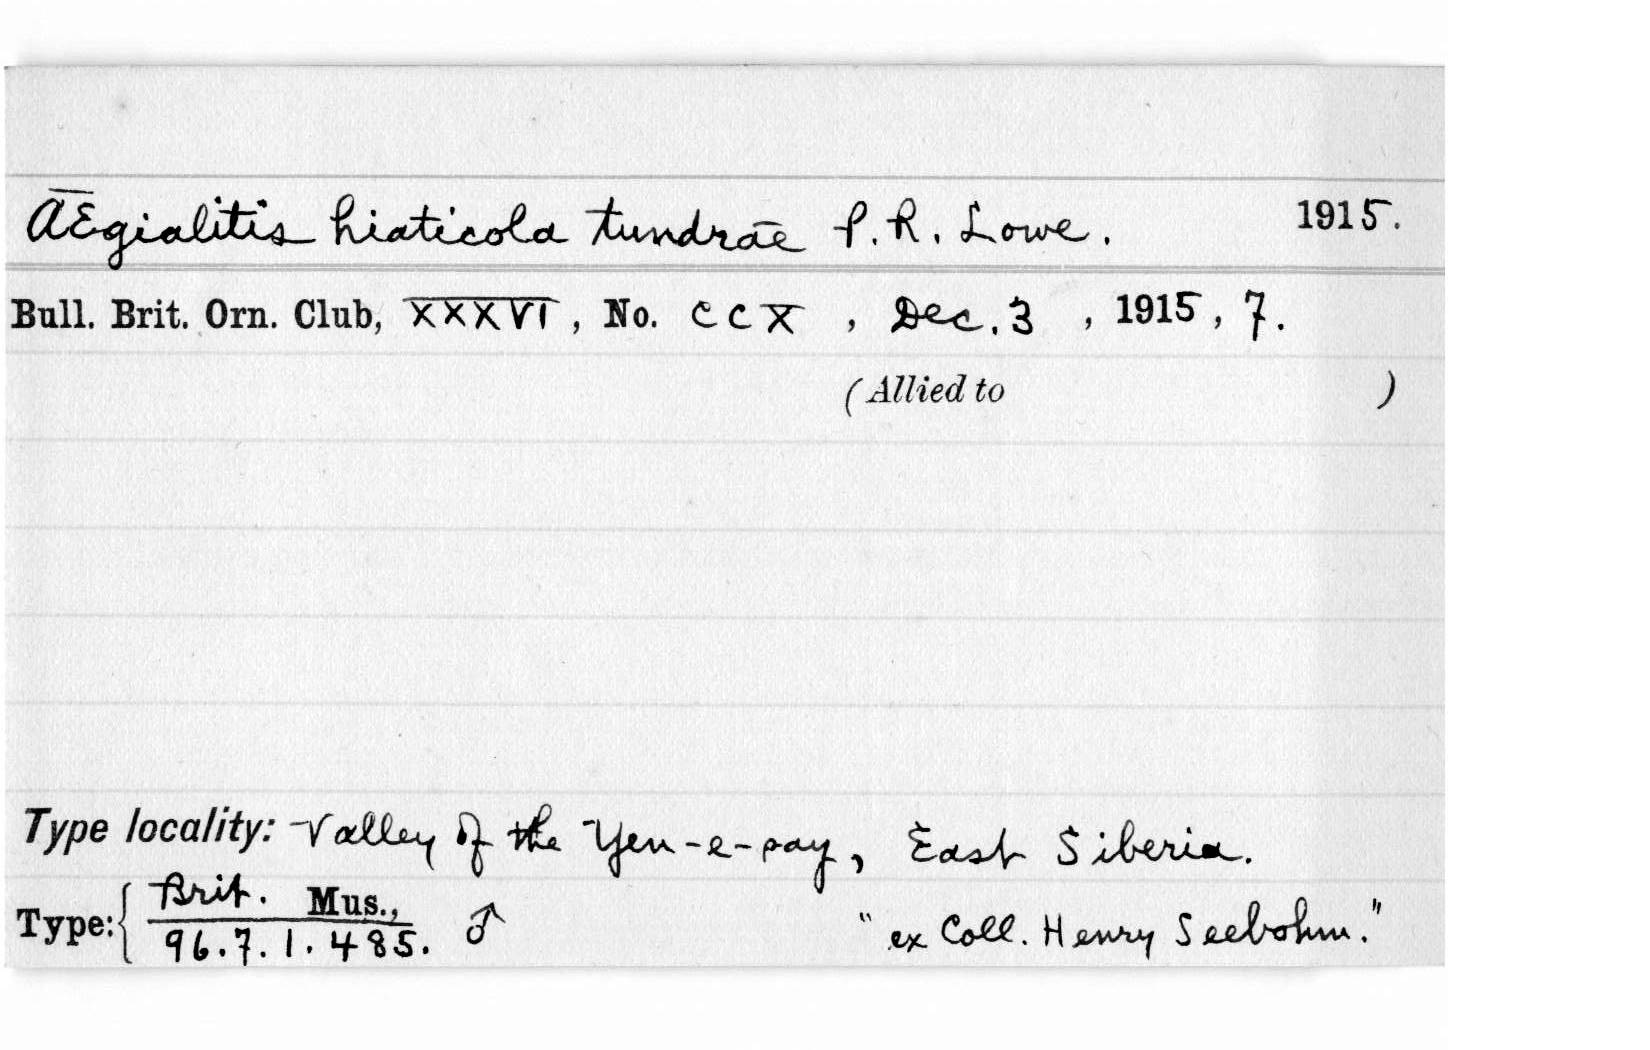 Ægialitis hiaticola tundrae P. R. Lowe. 1915.
Bull. Brit. Orn. Club, XXXVI, No. CCX, Dec. 3, 1915, 7.
(Allied to )
Type locality: Valley of the Yen-e-say, East Siberia.
Type: { Brit. Mus., 96.7.1.485. ♂ "ex Coll. Henry Seebohm."